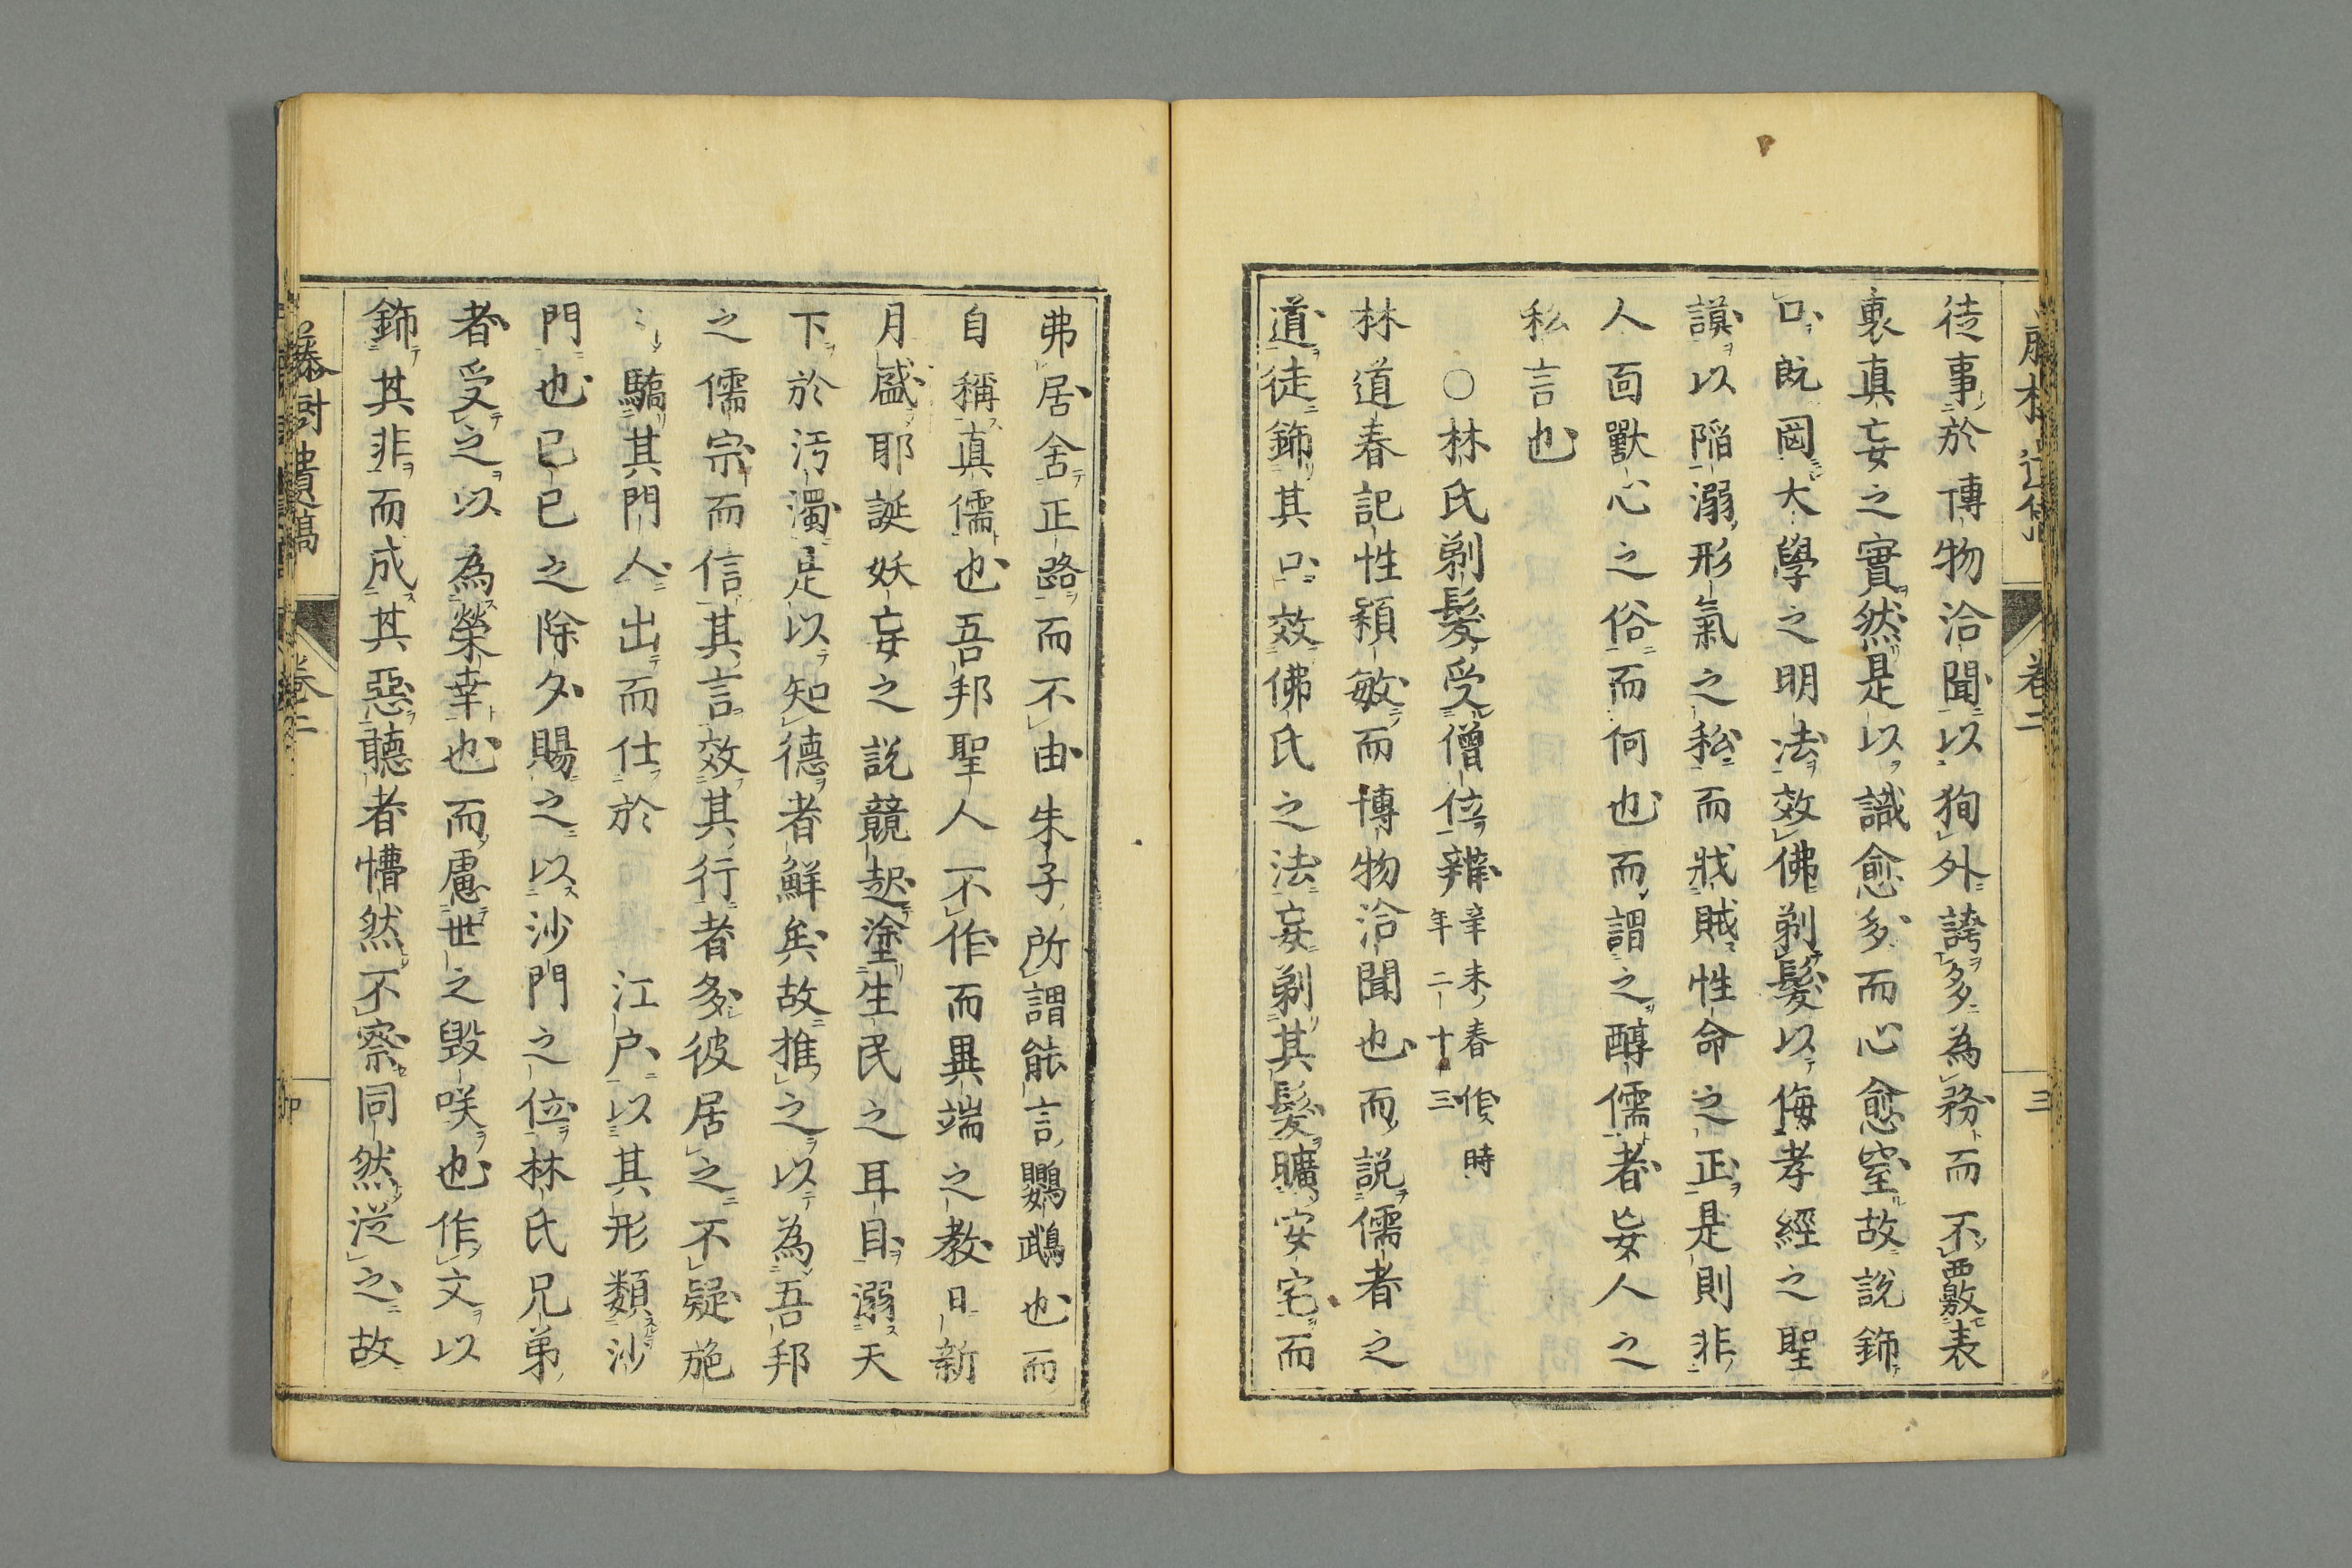 卷二
三
徒事於博物洽聞以狥外誇多為務而不覈表
裏真妄之實然是以識愈多而心愈窒故説飾
口既罔大學之明法效佛剃髮以侮孝經之聖
謨以陷溺形氣之私而戕賊性命之正是則非
人面獸心之俗而何也而謂之醇儒者妄人之
私言也
○林氏剃髮受僧位辨辛未春作時年二十三
林道春記性穎敏而博物洽聞也而説儒者之
道徒飾其口效佛氏之法妄剃其髮曠安宅而
弗居舍正路而不由朱子所謂能言鸚鵡也而
自稱真儒也吾邦聖人不作而異端之教日新
月盛耶誕妖妄之説競起塗生民之耳目溺天
下於汚濁是以知德者鮮矣故推之以為吾邦
之儒宗而信其言效其行者多彼居之不疑施
〻驕其門人出而仕於　江戸以其形類沙
門也已巳之除夕賜之以沙門之位林氏兄弟
者受之以為榮幸也而慮世之毀咲也作文以
飾其非而成其惡聽者懵然不察同然従之故
藤樹遺稿
卷二